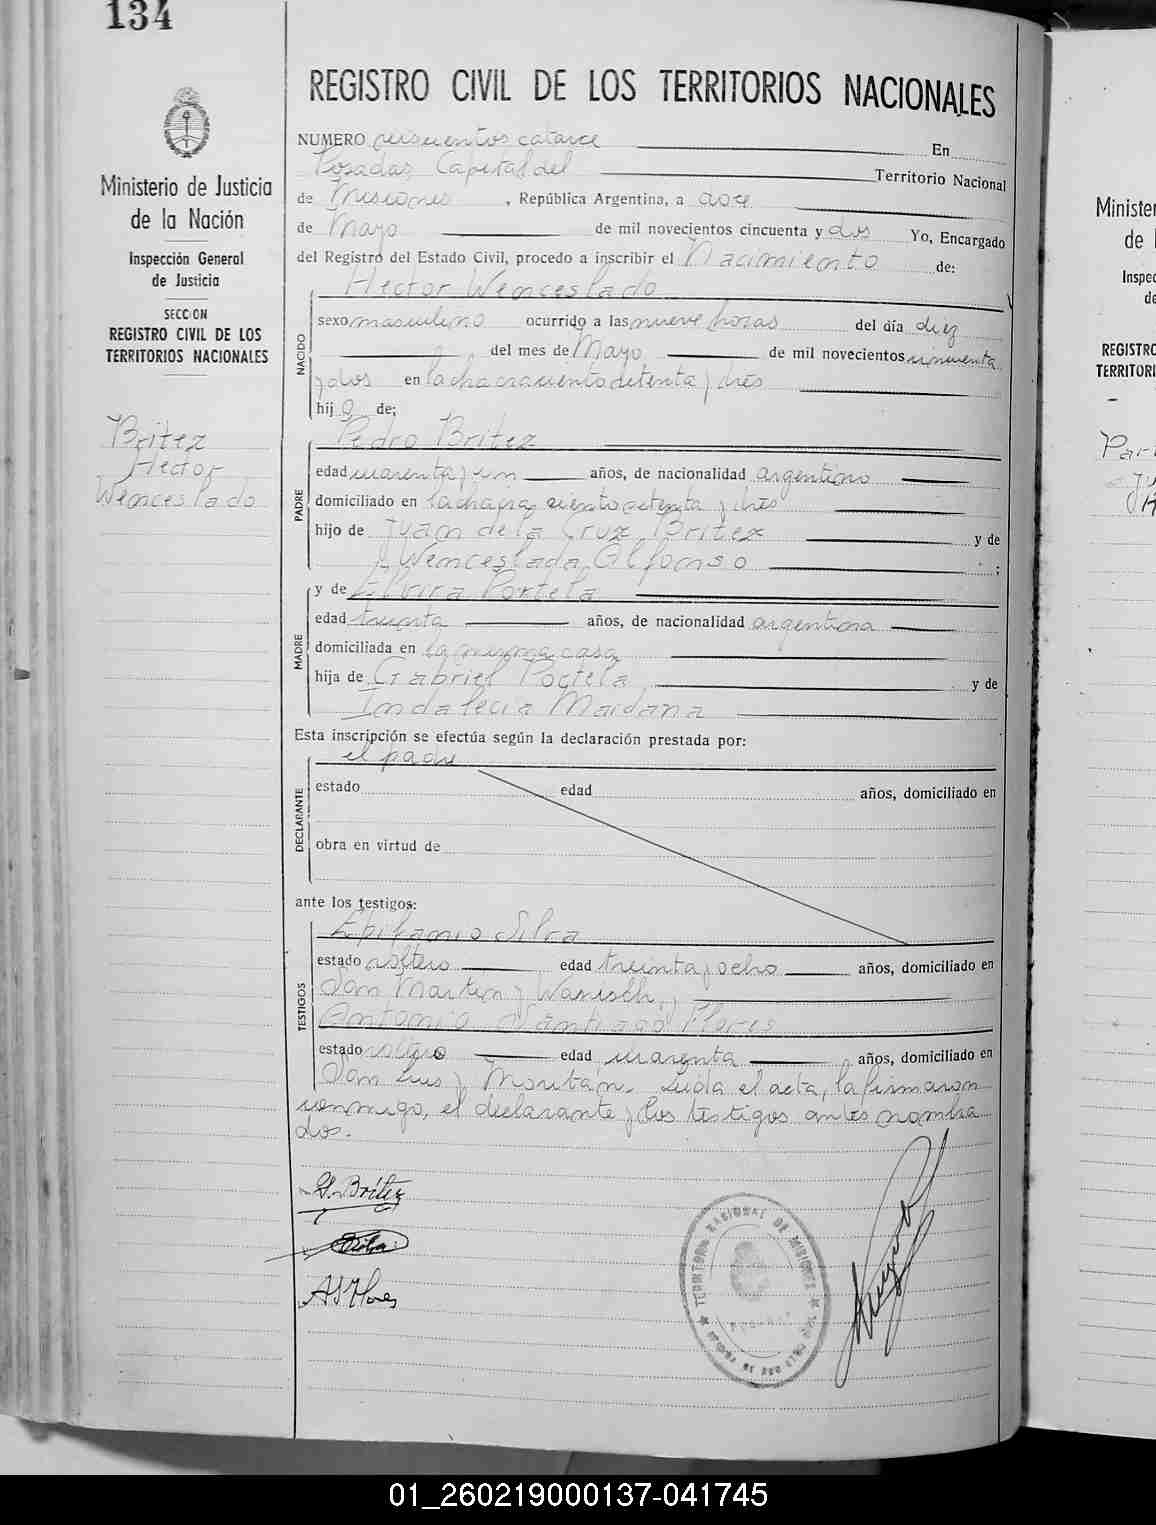 134
REGISTRO CIVIL DE LOS TERRITORIOS NACIONALES
Ministerio de Justicia
de la Nación
Inspección General
de Justicia
SECCION
REGISTRO CIVIL DE LOS
TERRITORIOS NACIONALES
Britez
Hector
Wenceslado
NUMERO seiscientos catorce En
Posadas Capital del Territorio Nacional
de Misiones, República Argentina, a doce
de Mayo de mil novecientos cincuenta y dos Yo, Encargado
del Registro del Estado Civil, procedo a inscribir el Nacimiento de:
NACIDO
Hector Wenceslado
sexo masculino ocurrido a las nueve horas del día diez
del mes de Mayo de mil novecientos cincuenta
y dos en la chacra ciento setenta y tres
hijo de;
PADRE
Pedro Britez
edad cuarenta y un años, de nacionalidad argentino
domiciliado en la chacra ciento setenta y tres
hijo de Juan de la Cruz Britez y de
Wenceslada Alfonso ;
MADRE
y de Elvira Portela
edad treinta años, de nacionalidad argentina
domiciliada en la misma casa
hija de Gabriel Portela y de
Indalecia Maidana
Esta inscripción se efectúa según la declaración prestada por:
DECLARANTE
el padre
estado edad años, domiciliado en
obra en virtud de
ante los testigos:
TESTIGOS
Epifanio Silva
estado soltero edad treinta y ocho años, domiciliado en
San Martin y
Antonio Santiago Flores
estado soltero edad cuarenta años, domiciliado en
San Luis y Leida el acta, la firmaron
conmigo, el declarante y los testigos antes nombra
dos.
P. Britez
ESilva
ASFlores
TERRITORIO NACIONAL DE MISIONES
POSADAS
Minister
de l
Inspec
de
REGISTRO
TERRITORI
01_260219000137-041745